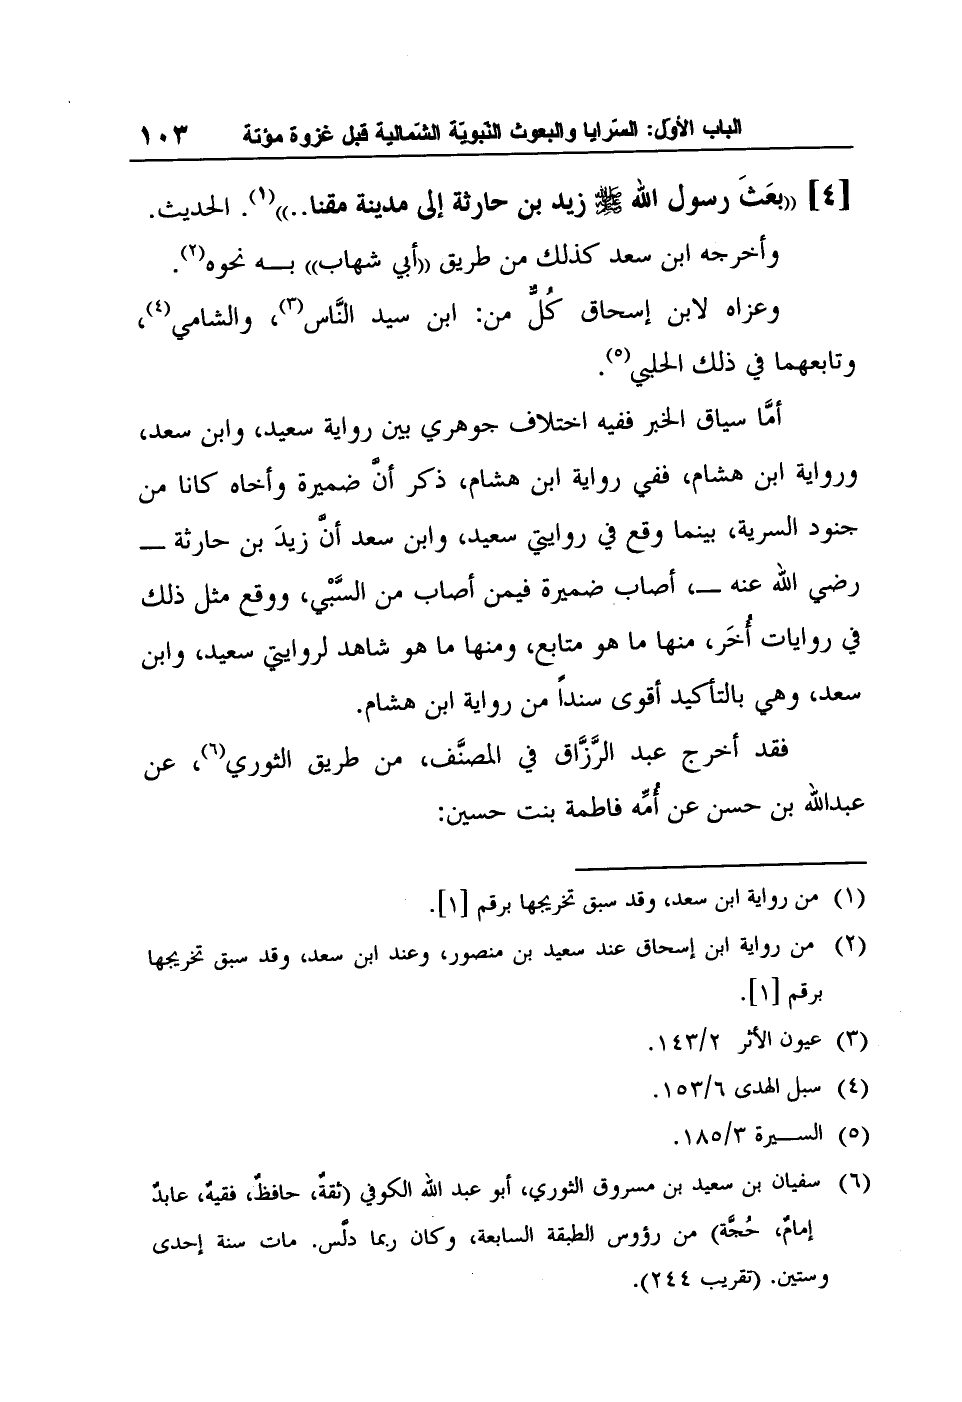 الباب الأول: السّرايا والبعوث النّبويّة الشّمالية قبل غزوة مؤتة ١٠٣
[٤] ((بعَثَ رسول الله ﷺ زيد بن حارثة إلى مدينة مقنا..))(١). الحديث.
وأخرجه ابن سعد كذلك من طريق ((أبي شهاب)) بــه نحوه(٢).
وعزاه لابن إسحاق كُلٌّ من: ابن سيد النَّاس(٣)، والشامي(٤)،
وتابعهما في ذلك الحلبي(٥).
أمَّا سياق الخبر ففيه اختلاف جوهري بين رواية سعيد، وابن سعد،
ورواية ابن هشام، ففي رواية ابن هشام، ذكر أنَّ ضميرة وأخاه كانا من
جنود السرية، بينما وقع في روايتي سعيد، وابن سعد أنَّ زيدَ بن حارثة ــ
رضي الله عنه ــ، أصاب ضميرة فيمن أصاب من السَّبْي، ووقع مثل ذلك
في روايات أُخَر، منها ما هو متابع، ومنها ما هو شاهد لروايتي سعيد، وابن
سعد، وهي بالتأكيد أقوى سنداً من رواية ابن هشام.
فقد أخرج عبد الرَّزَّاق في المصنَّف، من طريق الثوري(٦)، عن
عبدالله بن حسن عن أُمِّه فاطمة بنت حسين:
(١) من رواية ابن سعد، وقد سبق تخريجها برقم [١].
(٢) من رواية ابن إسحاق عند سعيد بن منصور، وعند ابن سعد، وقد سبق تخريجها
برقم [١].
(٣) عيون الأثر ١٤٣/٢.
(٤) سبل الهدى ١٥٣/٦.
(٥) الســيرة ١٨٥/٣.
(٦) سفيان بن سعيد بن مسروق الثوري، أبو عبد الله الكوفي (ثقةٌ، حافظٌ، فقيهٌ، عابدٌ
إمامٌ، حُجَّة) من رؤوس الطبقة السابعة، وكان ربما دلَّس. مات سنة إحدى
وستين. (تقريب ٢٤٤).